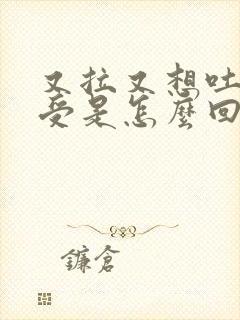 又拉又想吐
受是怎麼回
鐮倉